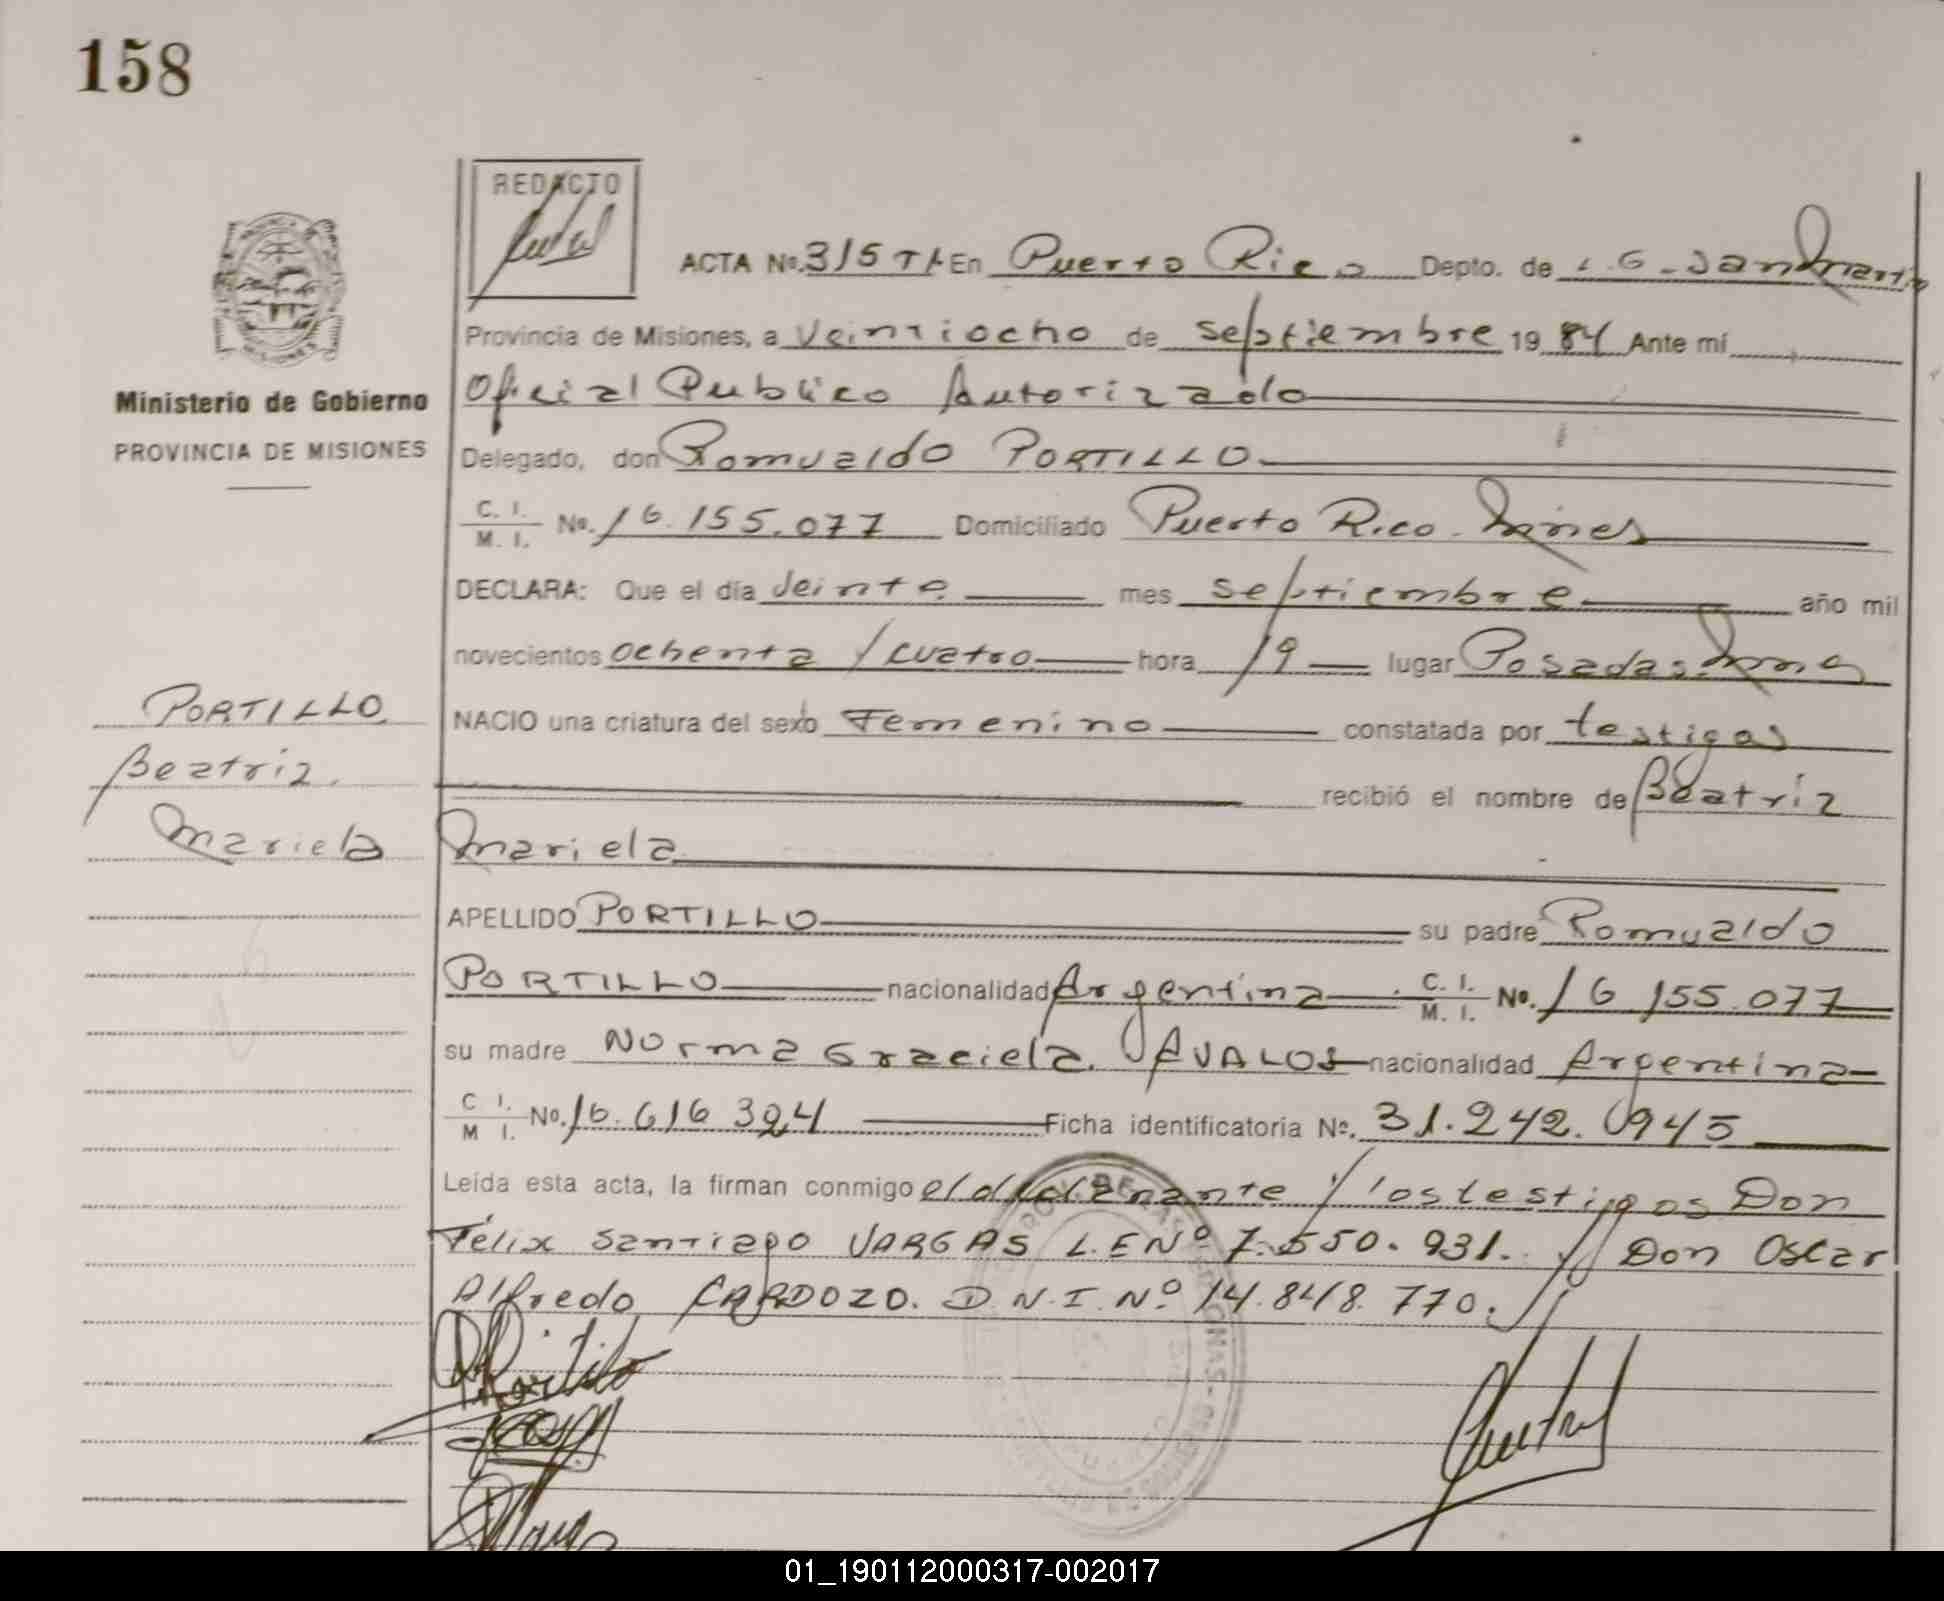 158
REDACTO
ACTA No. 315 TI En Puerto Rico Depto. de L.G. San Martin
Provincia de Misiones, a Veintiocho de septiembre 1984 Ante mí
Oficial Publico Autorizado
Ministerio de Gobierno
PROVINCIA DE MISIONES
Delegado, don Romualdo PORTILLO
C. I. / M. I. No. 16.155.077 Domiciliado Puerto Rico. Mnes
DECLARA: Que el día Veinte mes septiembre año mil
novecientos ochenta y cuatro hora 19 lugar Posadas. Mnes
PORTILLO
Beatriz
Mariela
NACIO una criatura del sexo Femenino constatada por testigos
recibió el nombre de Beatriz
Mariela
APELLIDO PORTILLO su padre Romualdo
PORTILLO nacionalidad Argentina C. I. / M. I. No. 16 155.077
su madre Norma Graciela AVALOS nacionalidad Argentina
C I. / M I. No. 16.616 324 Ficha identificatoria No. 31.242.945
Leída esta acta, la firman conmigo el declarante y los testigos Don
Félix Santiago VARGAS L.E Nº 7.550.931. y Don Oscar
Alfredo CARDOZO. D.N.I. Nº 14.848.770.
01_190112000317-002017